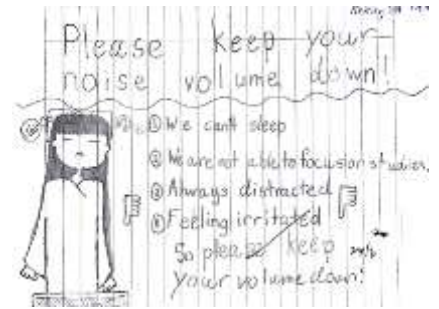 Please keep your
noise volume down!!
① We can't sleep
② We are not able to focus on studies.
③ Always distracted
④ Feeling irritated
So please keep
your volume down!